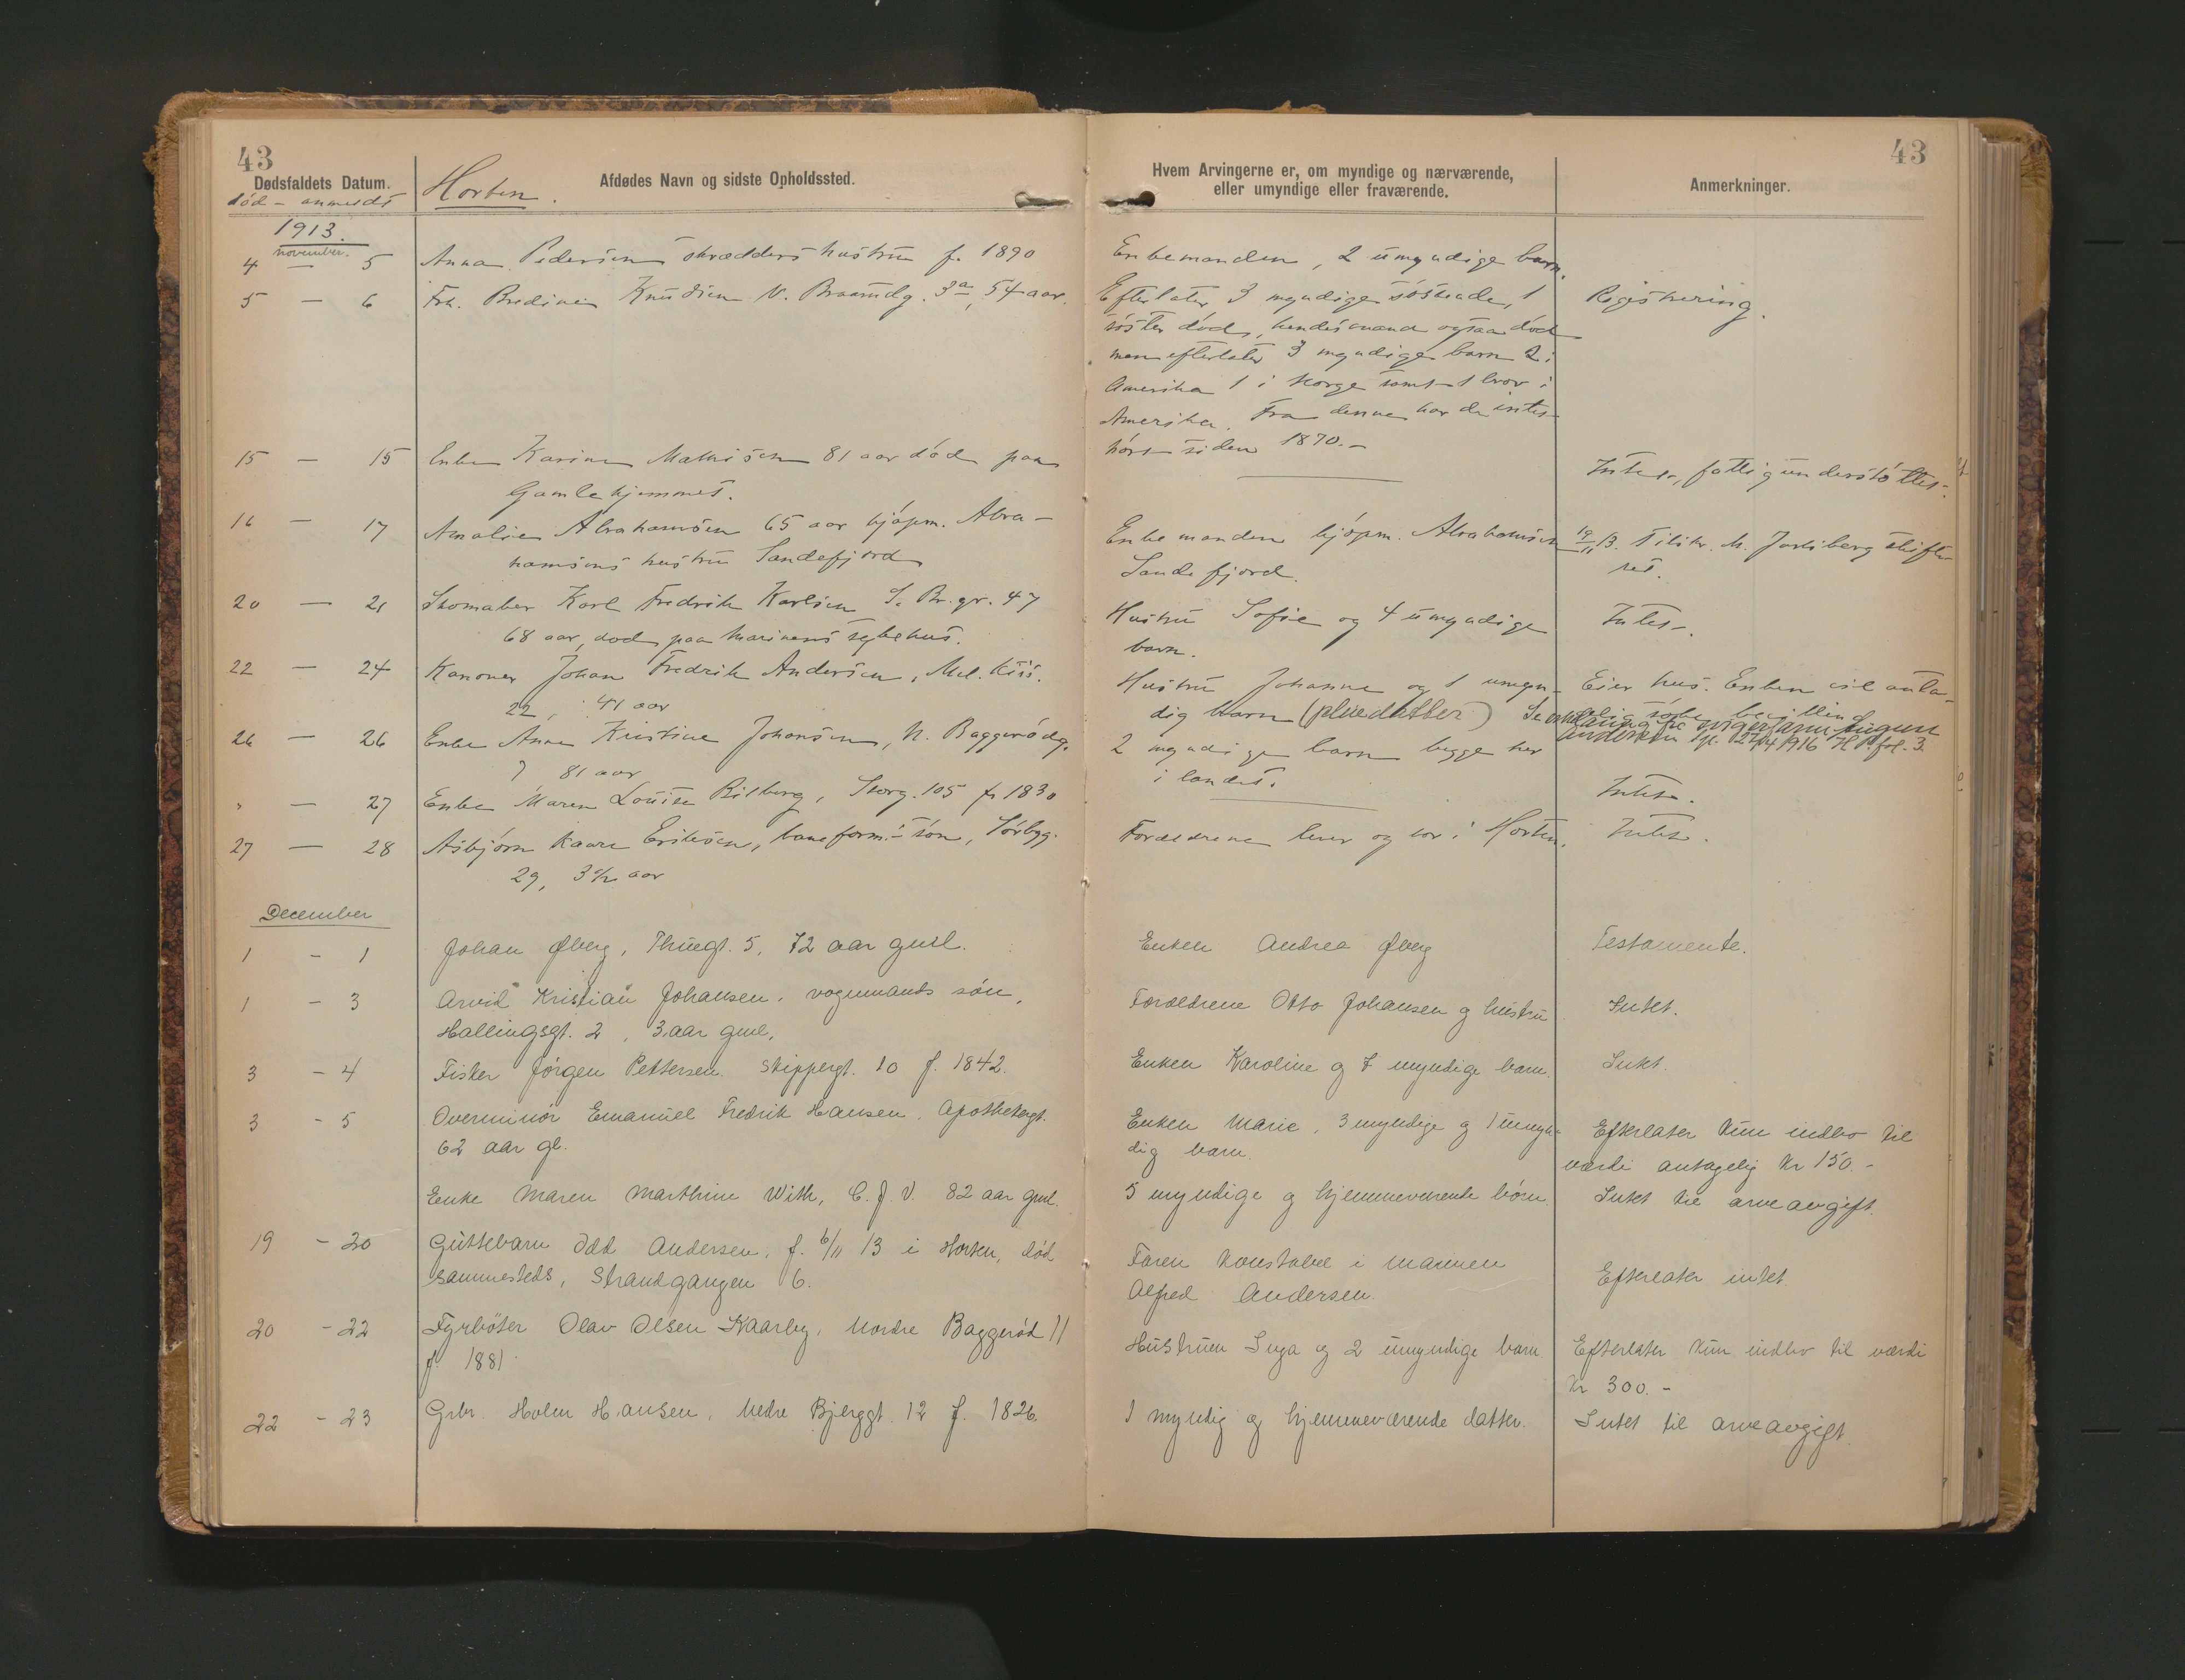 43
43
Dødsfaldets Datum.
død - anmeldt
Horten.
Afdødes Navn og sidste Opholdssted.
Hvem Arvingerne er, om myndige og nærværende,
eller umyndige eller fraværende.
Anmerkninger.
1913.
november.
4 — 5 Anna Pedersen skrædders hustru f. 1890
Enkemanden, 2 umyndige barn.
5 — 6 Frk. Bredine Knudsen N. Braarudg. 3a, 54 aar.
Efterlater 3 myndige søskende, 1
søster død, hendes mand ogsaa død
men efterlater 3 myndige barn 2 i
Amerika 1 i Norge samt 1 bror i
Amerika. Fra denne har de intet
hørt siden 1870.-
Registrering.
15 — 15 Enke Karine Mathisen 81 aar død paa
Gamlehjemmet.
Intet, fattigunderstøttet.
16 — 17 Amalie Abrahamsen 65 aar kjøpm. Abra-
hamsens hustru Sandefjord
Enkemanden kjøpm. Abrahamsen
Sandefjord.
19/11 13. Tilskr. M. Jarlsberg skifte-
ret.
20 — 21 Skomaker Karl Fredrik Karlsen S. Br. gr. 47
68 aar, død paa Marinens sykehus.
Hustru Sofie og 4 umyndige
barn.
Intet.
22 — 24 Kanoner Johan Fredrik Andersen, Mel.
22, 41 aar
Hustru Johanne og 1 umyn-
dig barn (pleiedatter)
Eier hus. Enken vil anta-
gelig søke bevilling
Andersen 27/4 1916 fol. 3.
26 — 26 Enke Anne Kristine Johansen, N. Baggerødg.
7 81 aar
2 myndige barn begge her
i landet.
" — 27 Enke Maren Louise Bilberg, Storg. 105 f. 1830
Intet.
27 — 28 Asbjørn Kaare Eriksen, baneform.s søn, Sørbyg.
29, 3 1/2 aar
Forældrene lever og bor i Horten.
Intet.
December
1 - 1 Johan Øberg, Thuegt. 5, 72 aar gml.
Enken Andrea Øberg
Testamente.
1 - 3 Arvid Kristian Johansen, vognmands søn,
Hallingsgt. 2, 3 aar gml.
Forældrene Otto Johansen g hustru
Intet.
3 - 4 Fisker Jørgen Pettersen Skippergt. 10 f. 1842.
Enken Karoline og 7 myndige barn.
Intet.
3 - 5 Overminör Emanuel Fredrik Hansen. Apothekergt.
62 aar gl.
Enken Marie, 3 myndige og 1 umyn-
dig barn.
Efterlater kun indbo til
værdi antagelig kr 150.-
Enke Maren Marthine With, C. J. V. 82 aar gml.
5 myndige g hjemmeværende börn.
Intet til arveavgift.
19 - 20 Guttebarn Odd Andersen, f. 6/11 13 i Horten, död
sammesteds, Strandgangen 6.
Faren konstabel i marinen
Alfred Andersen.
Efterlater intet
20 - 22 Fyrböter Olav Olsen Kaarby, Nordre Baggerød 11
f. 1881
Hustruen Inga og 2 umyndige barn
Efterlater kun indbo til værdi
kr 300.-
22 - 23 Grbr. Holm Hansen, Nedre Bjerggt. 12 f. 1826.
1 myndig og hjemmeværende datter.
Intet til arveavgift